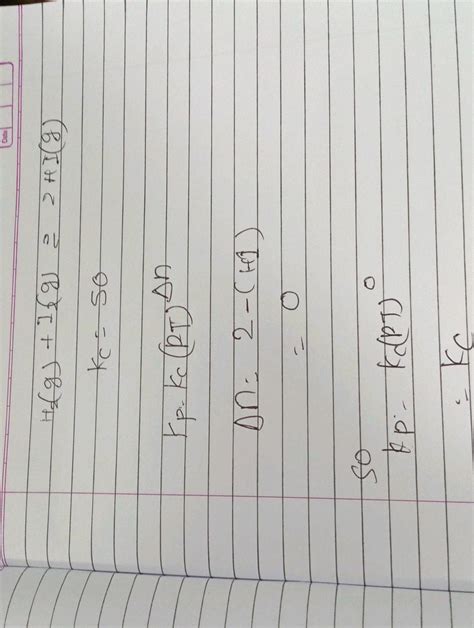 Date
H₂(g) + I₂(g) = 2HI(g)
Kc = 50
Kp = Kc(PT)^Δn
Δn = 2-(1+1)
= 0
so
Kp = Kc(PT)^0
= Kc